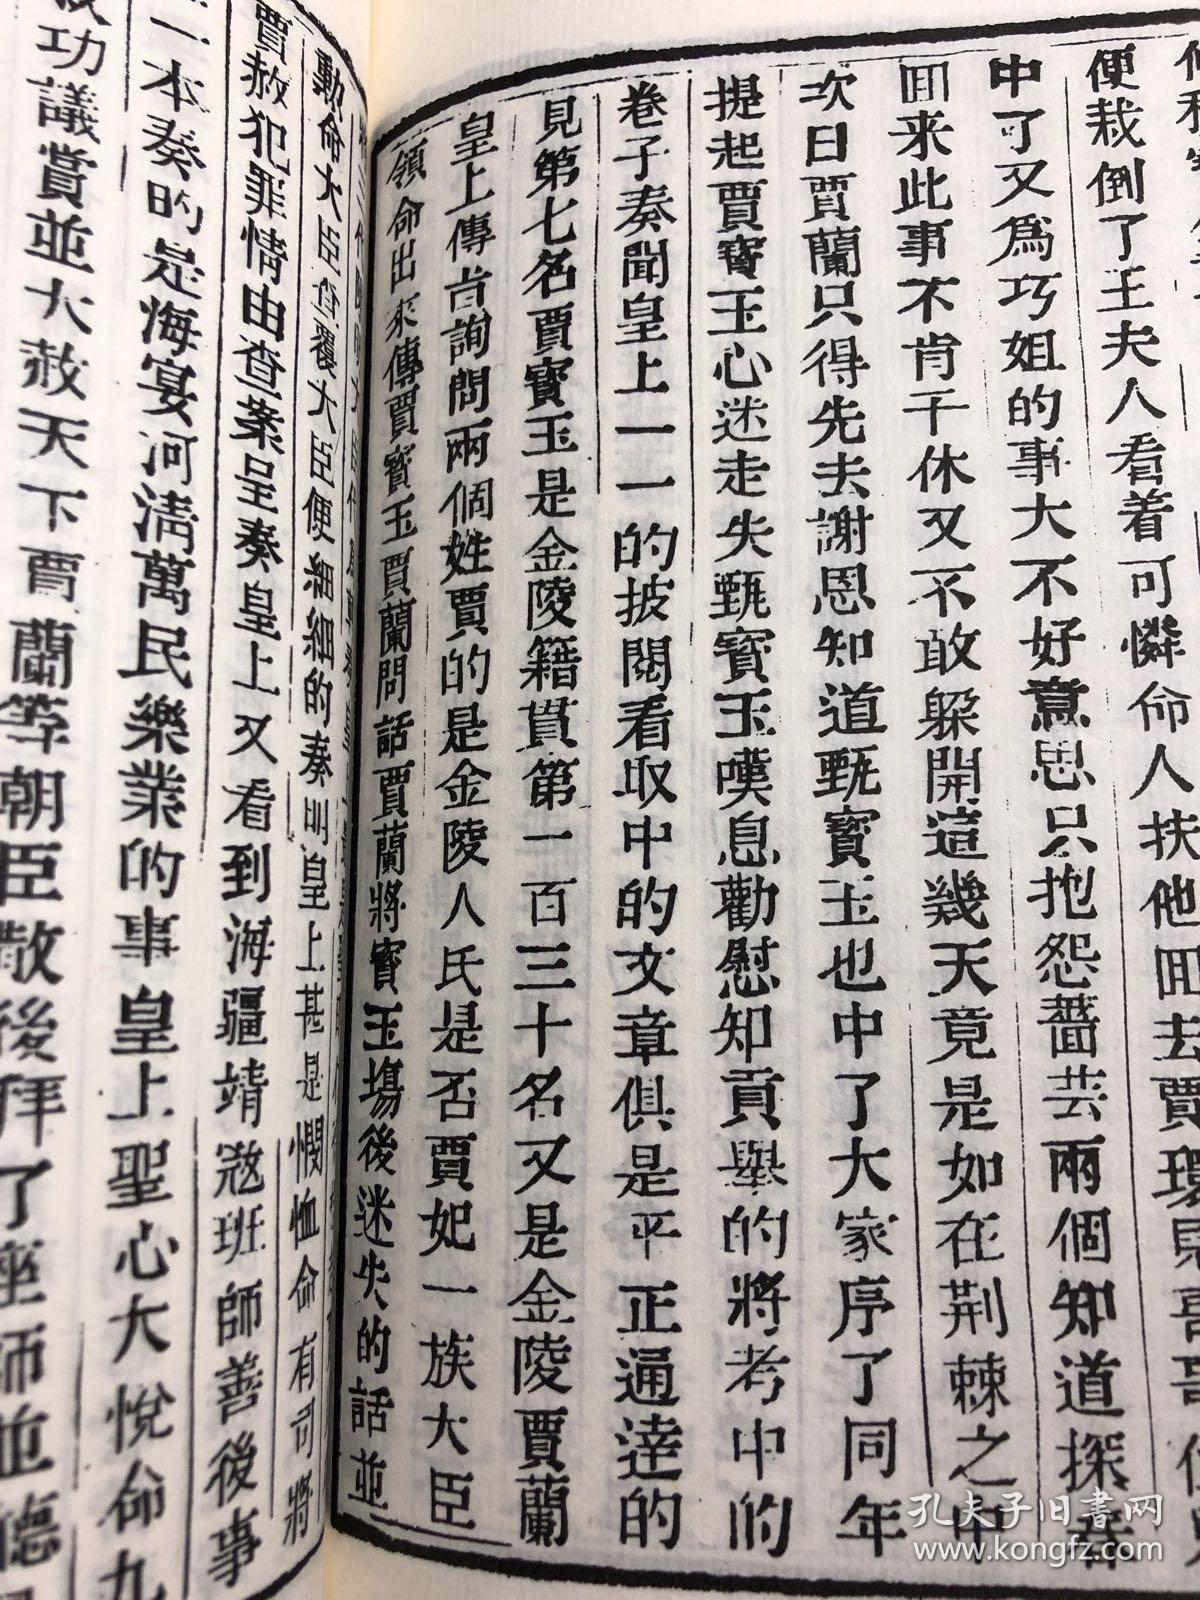 便栽倒了王夫人看着可憐命人扶他回去賈環見哥哥
中了又爲巧姐的事大不好意思只抱怨薔芸兩個知道探春
回来此事不肯干休又不敢躲開這幾天竟是如在荆棘之中
次日賈蘭只得先去謝恩知道甄寳玉也中了大家序了同年
提起賈寳玉心迷走失甄寳玉嘆息勸慰知貢舉的將考中的
卷子奏聞皇上一一的披閱看取中的文章俱是平正通達的
見第七名賈寳玉是金陵籍貫第一百三十名又是金陵賈蘭
皇上傳旨詢問兩個姓賈的是金陵人氏是否賈妃一族大臣
領命出來傳賈寳玉賈蘭問話賈蘭將寳玉塲後迷失的話並
勲命大臣查覆大臣便細細的奏明皇上甚是憫恤命有司將
賈赦犯罪情由查案呈奏皇上又看到海疆靖寇班師善後事
一本奏的是海宴河淸萬民樂業的事皇上聖心大悅命九
功議賞並大赦天下賈蘭等朝臣散後拜了座師並
孔夫子旧书网
www.kongfz.com